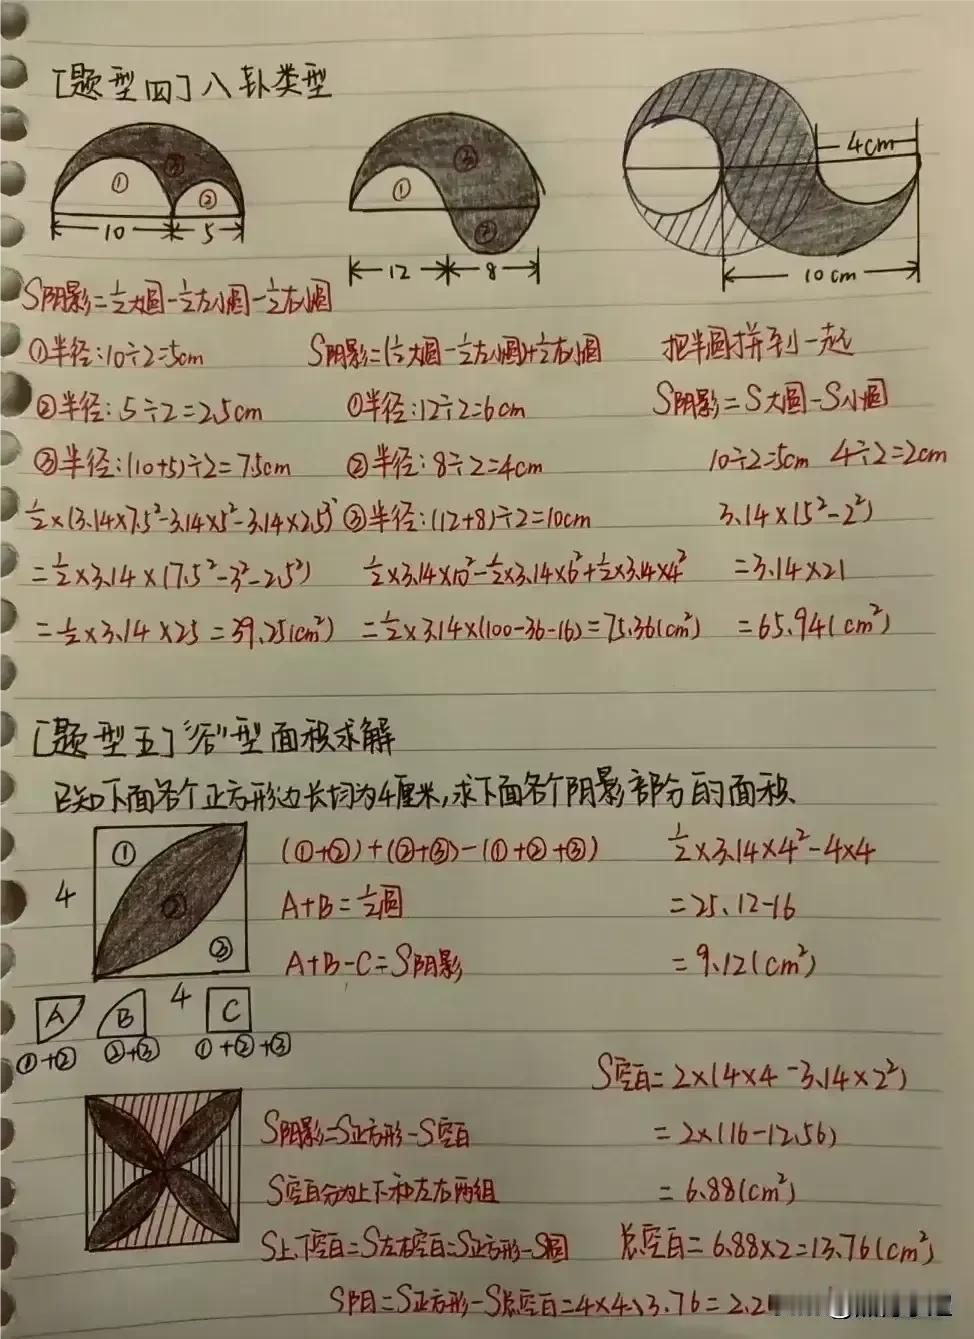 [题型四]八卦类型
① ② ③
10 5
① ③ ②
12 8
4cm
10cm
S阴影=½大圆-½左小圆-½右小圆
①半径:10÷2=5cm
②半径:5÷2=2.5cm
③半径:(10+5)÷2=7.5cm
½×(3.14×7.5²-3.14×5²-3.14×2.5)²
=½×3.14×(7.5²-3²-2.5²)
=½×3.14×25=39.25(cm²)
S阴影=(½大圆-½左小圆)+½右小圆
①半径:12÷2=6cm
②半径:8÷2=4cm
③半径:(12+8)÷2=10cm
½×3.14×10²-½×3.14×6²+½×3.14×4²
=½×3.14×(100-36-16)=75.36(cm²)
把半圆拼到一起
S阴影=S大圆-S小圆
10÷2=5cm 4÷2=2cm
3.14×(5²-2²)
=3.14×21
=65.94(cm²)
[题型五]"谷"型面积求解
已知下面各个正方形边长均为4厘米,求下面各个阴影部分的面积.
① ② ③
4
4
A B C
①+② ②+③ ①+②+③
(①+②)+(②+③)-(①+②+③)
A+B=½圆
A+B-C=S阴影
½×3.14×4²-4×4
=25.12-16
=9.12(cm²)
S空白=2×(4×4-3.14×2²)
=2×(16-12.56)
=6.88(cm²)
总空白=6.88×2=13.76(cm²)
S阴影=S正方形-S空白
S空白分为上下和左右两组
S上下空白=S左右空白=S正方形-S圆
S阴=S正方形-S总空白=4×4-13.76=2.2